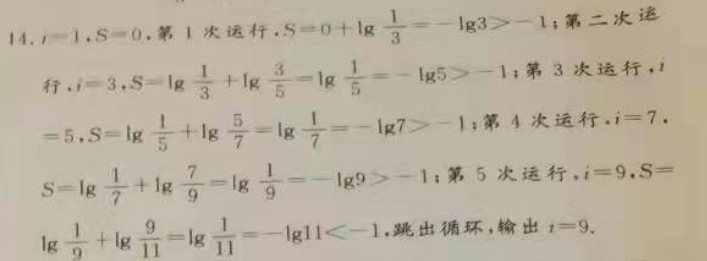 14. i=1,S=0,第 1 次运行,S=0+lg 1/3=-lg3>-1;第二次运
行,i=3,S=lg 1/3+lg 3/5=lg 1/5=-lg5>-1;第 3 次运行,i
=5,S=lg 1/5+lg 5/7=lg 1/7=-lg7>-1;第 4 次运行,i=7,
S=lg 1/7+lg 7/9=lg 1/9=-lg9>-1;第 5 次运行,i=9,S=
lg 1/9+lg 9/11=lg 1/11=-lg11<-1,跳出循环,输出 i=9.